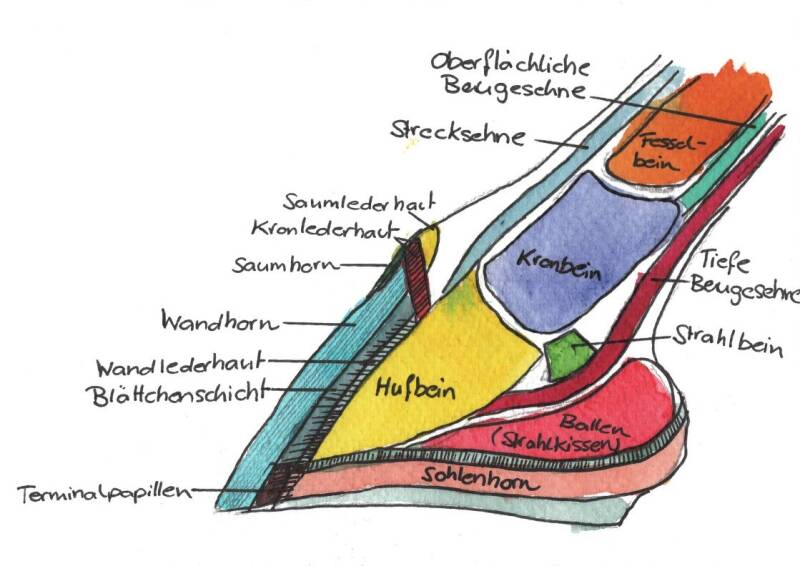 Oberflächliche
Beugesehne
Strecksehne
Fessel-
bein
Saumlederhaut
Kronlederhaut
Saumhorn
Kronbein
Tiefe
Beugesehne
Wandhorn
Strahlbein
Wandlederhaut
Blättchenschicht
Hufbein
Ballen
(Strahlkissen)
Sohlenhorn
Terminalpapillen